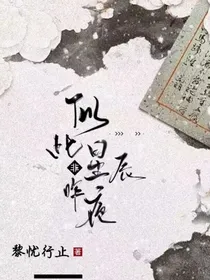 似此星辰
非昨夜
黎忧行止 著